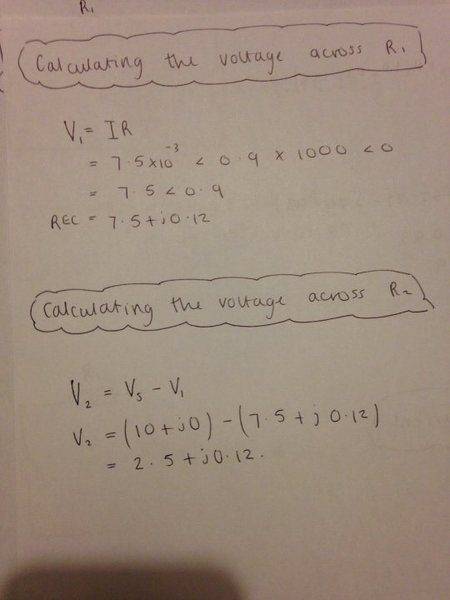 R₁
Calculating the voltage across R₁
V₁ = IR
= 7.5×10⁻³ < 0.9 × 1000 < 0
= 7.5 < 0.9
REC = 7.5 + j0.12
Calculating the voltage across R₂
V₂ = Vs - V₁
V₂ = (10 + j0) - (7.5 + j0.12)
= 2.5 + j0.12.